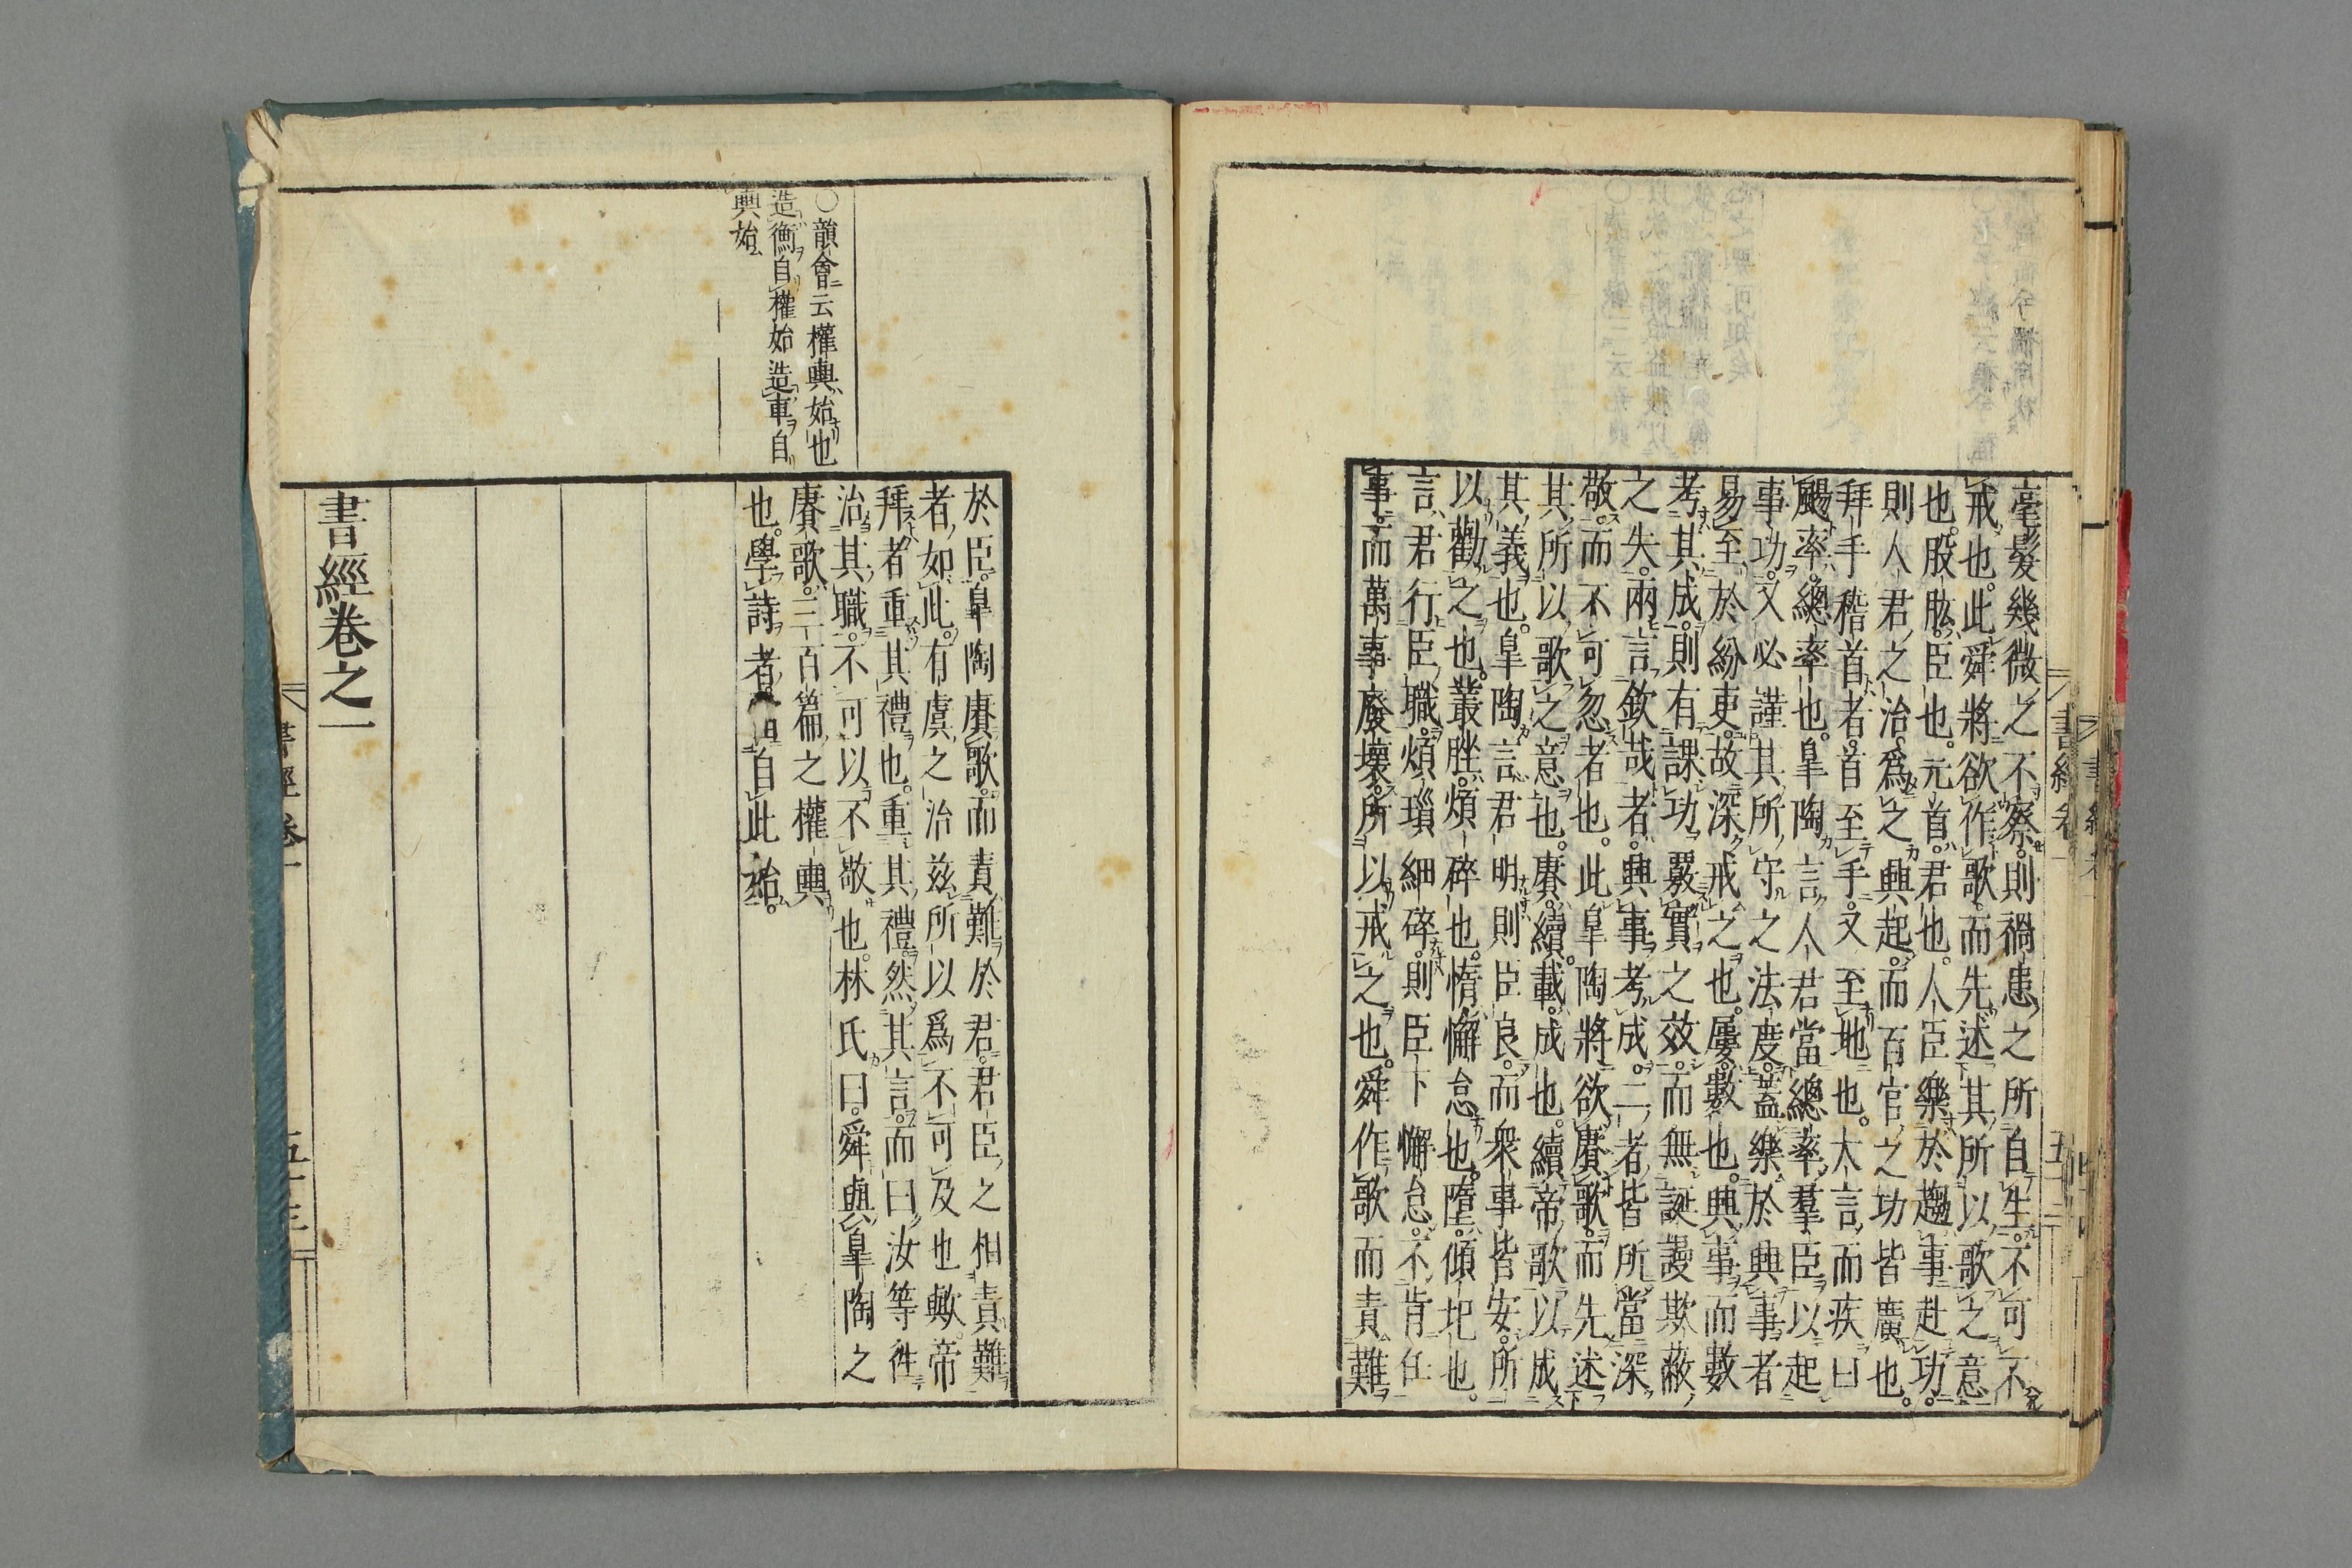 毫髮幾微之不察則禍患之所自生不可不
戒也此舜將欲作歌而先述其所以歌之意
也股肱臣也元首君也人臣樂於趨事赴功
則人君之治爲之興起而百官之功皆廣也
拜手稽首者首至手又至地也大言而疾曰
颺率總率也皐陶言人君當總率羣臣以起
事功又必謹其所守之法度蓋樂於興事者
易至於紛更故深戒之也屢數也興事而數
考其成則有課功覈實之效而無誕謾欺蔽
之失兩言欽哉者興事考成二者皆所當深
敬而不可忽者也此皐陶將欲賡歌而先述
其所以歌之意也賡續載成也續帝歌以成
其義也皐陶言君明則臣良而衆事皆安所
以勸之也叢脞煩碎也惰懈怠也墮傾圮也
言君行臣職煩瑣細碎則臣下懈怠不肯任
事而萬事廢壞所以戒之也舜作歌而責難
○韻會云權輿始也
造衡自權始造車自
輿始
於臣皐陶賡歌而責難於君君臣之相責難
者如此有虞之治茲所以爲不可及也歟帝
拜者重其禮也重其禮然其言而曰汝等往
治其職不可以不敬也林氏曰舜與皐陶之
賡歌三百篇之權輿
也學詩者當自此始
書經卷之一
書經卷一